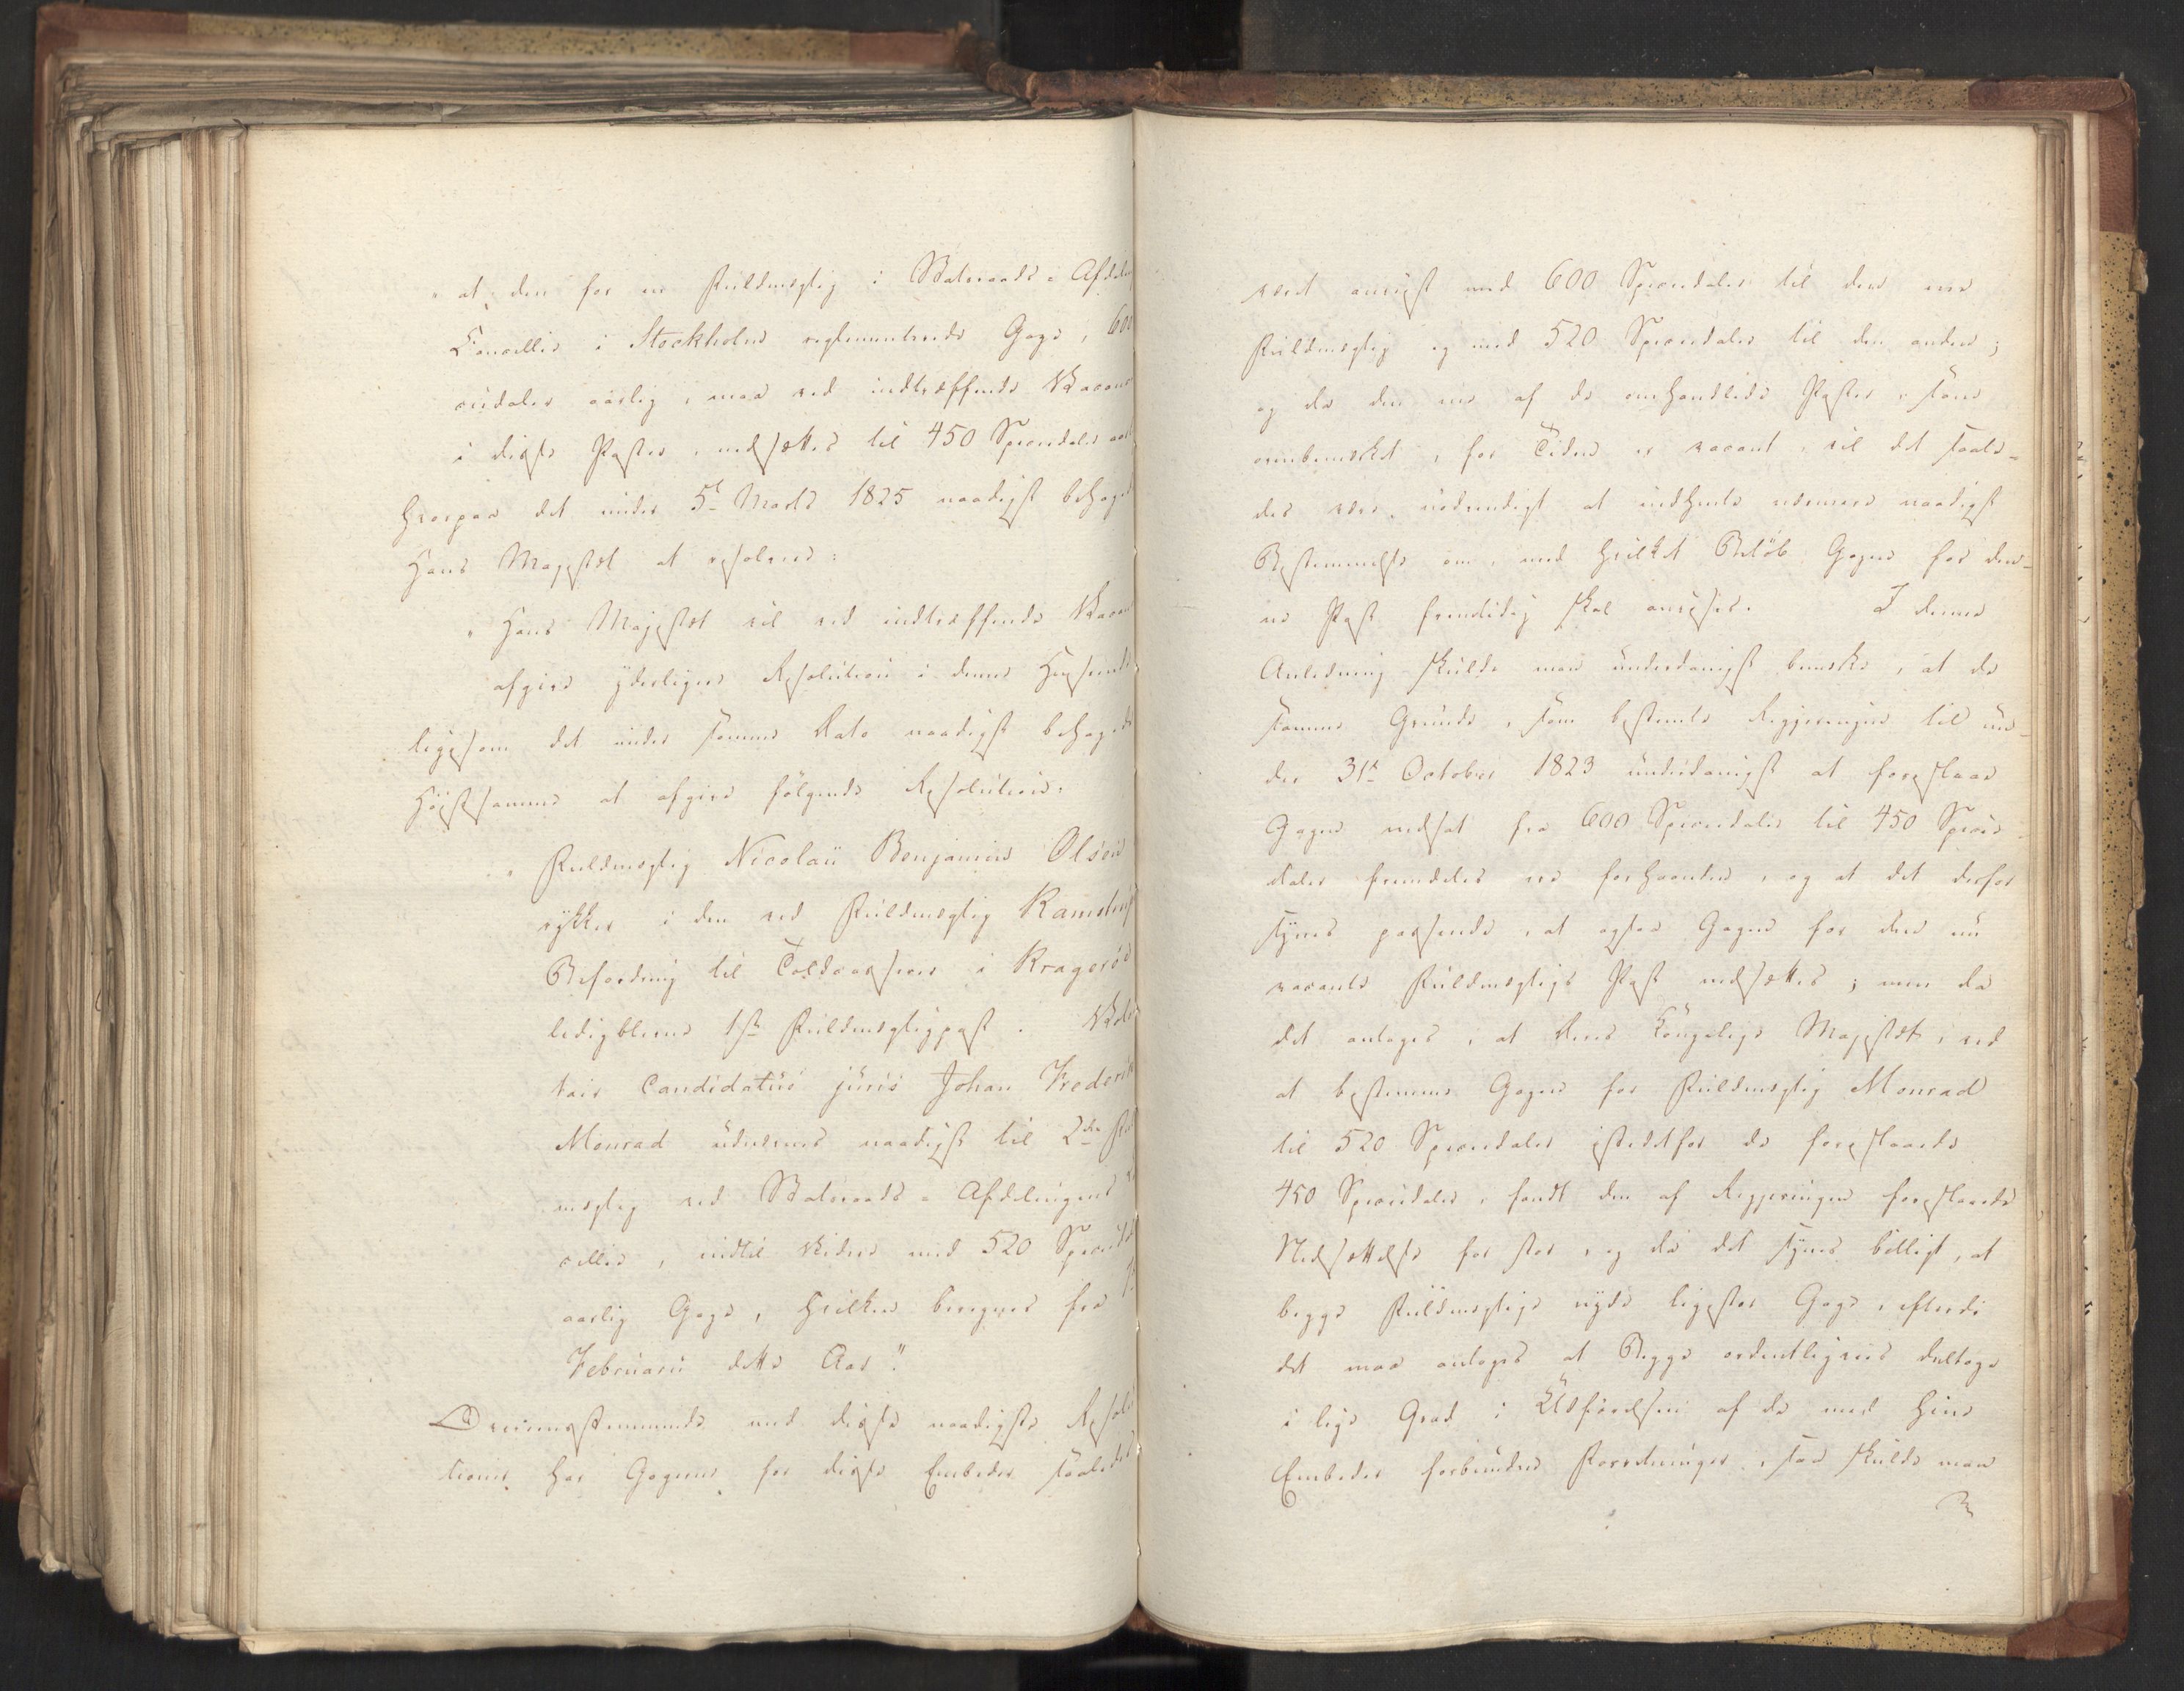 "at den for en Fuldmægtig i Statsraads-Afdel
Cancellie i Stockholm reglementerede Gage, 600
ciedaler aarlig, maa ved indtræffende Vacan
i disse Poster, nedsættes til 450 Speciedaler aarl
hvorpaa det under 5t Marts 1825 naadigst behaged
Hans Majestæt at resolvere:
"Hans Majestæt vil ved indtræffende Vacan
afgive yderligere Resolution i denne Henseende
ligesom det under samme Dato naadigst behagede
Høistsamme at afgive følgende Resolution:
"Fuldmægtig Nicolaii Benjamin Olsen
rykker i den ved Fuldmægtig
Befordring til Toldcasserer i Kragerøe
ledigblevne 1ste Fuldmægtigpost. Volon
tair Candidatus juris Johan Frederik
Monrad udnævnes naadigst til 2den Ful
mægtig ved Statsraads-Afdelingens
cellie, indtil Videre med 520 Specied
aarlig Gage, hvilken beregnes fra 1
Februarii dette Aar".
Overeensstemmende med disse naadigste Resolu
tioner har Gagerne for disse Embeder saaledes
været anviist med 600 Speciedaler til den ene
Fuldmægtig og med 520 Speciedaler til den anden;
og da den ene af de omhandlede Poster, som
ovenbemærket, for Tiden er vacant, vil det saale-
des være nødvendigt at indhente nærmere naadigst
Bestemmelse om, med hvilket Beløb Gagen for den-
ne Post fremtidig skal anvises. I denne
Anledning skulde man underdanigst bemærke, at de
samme Grunde, som bestemte Regjeringen til un-
der 31te October 1823 underdanigst at foreslaae
Gagen nedsat fra 600 Speciedaler til 450 Specie-
daler fremdeles ere forhaanden, og at det derfor
synes passende, at ogsaa Gagen for den nu
vacante Fuldmægtigs Post nedsættes; men da
det antages, at Deres Kongelige Majestæt, ved
at bestemme Gagen for Fuldmægtig Monrad
til 520 Speciedaler istedetfor de foreslaaede
450 Speciedaler, fandt den af Regjeringen foreslaaede
Nedsættelse for stor, og da det synes billigt, at
begge Fuldmægtige nyde ligestor Gage, efterdi
det maa antages at Begge ordentligviis deeltage
i lige Grad i Udførelsen af de med hine
Embeder forbundne Forretninger, saa skulde man